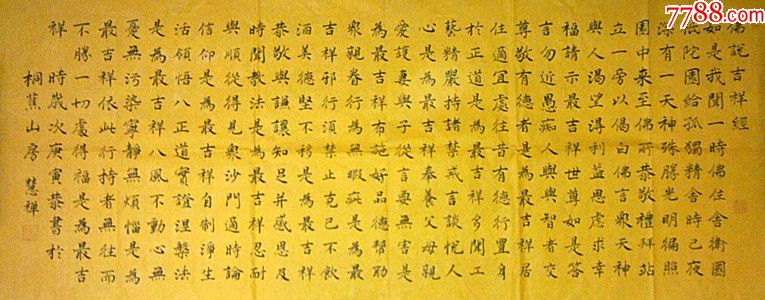 7788.com
佛說吉祥經
如是我聞一時佛住舍衛國
祇陀園給孤獨精舍時已夜
深有一天神殊勝光明徧照
園中來至佛所恭敬禮拜站
立一旁以偈白佛言眾天神
與人渴望得利益思慮求幸
福請示最吉祥世尊如是答
言勿近愚痴人與與智者交
尊敬有德者是為最吉祥居
住適宜處往昔有德行置身
於正道是為最吉祥多聞工
藝精嚴持諸禁戒言談悅人
心是為最吉祥奉養父母親
愛護妻與子從言要無害是
為最吉祥布施好品德幫助
眾親眷行為無瑕疵是為最
吉祥邪行須禁止克己不飲
酒美德堅不移是為最吉祥
恭敬與謙讓知足并感恩及
時聞教法是為最吉祥忍耐
與順從得見眾沙門適時論
信仰是為最吉祥自制淨生
活領悟八正道實證涅槃法
是為最吉祥八風不動心無
憂無污染寧靜無煩惱是為
最吉祥依此行持者無往而
不勝一切處得福是為最吉
祥 時歲次庚寅恭書於
桐蕉山房 慧禪